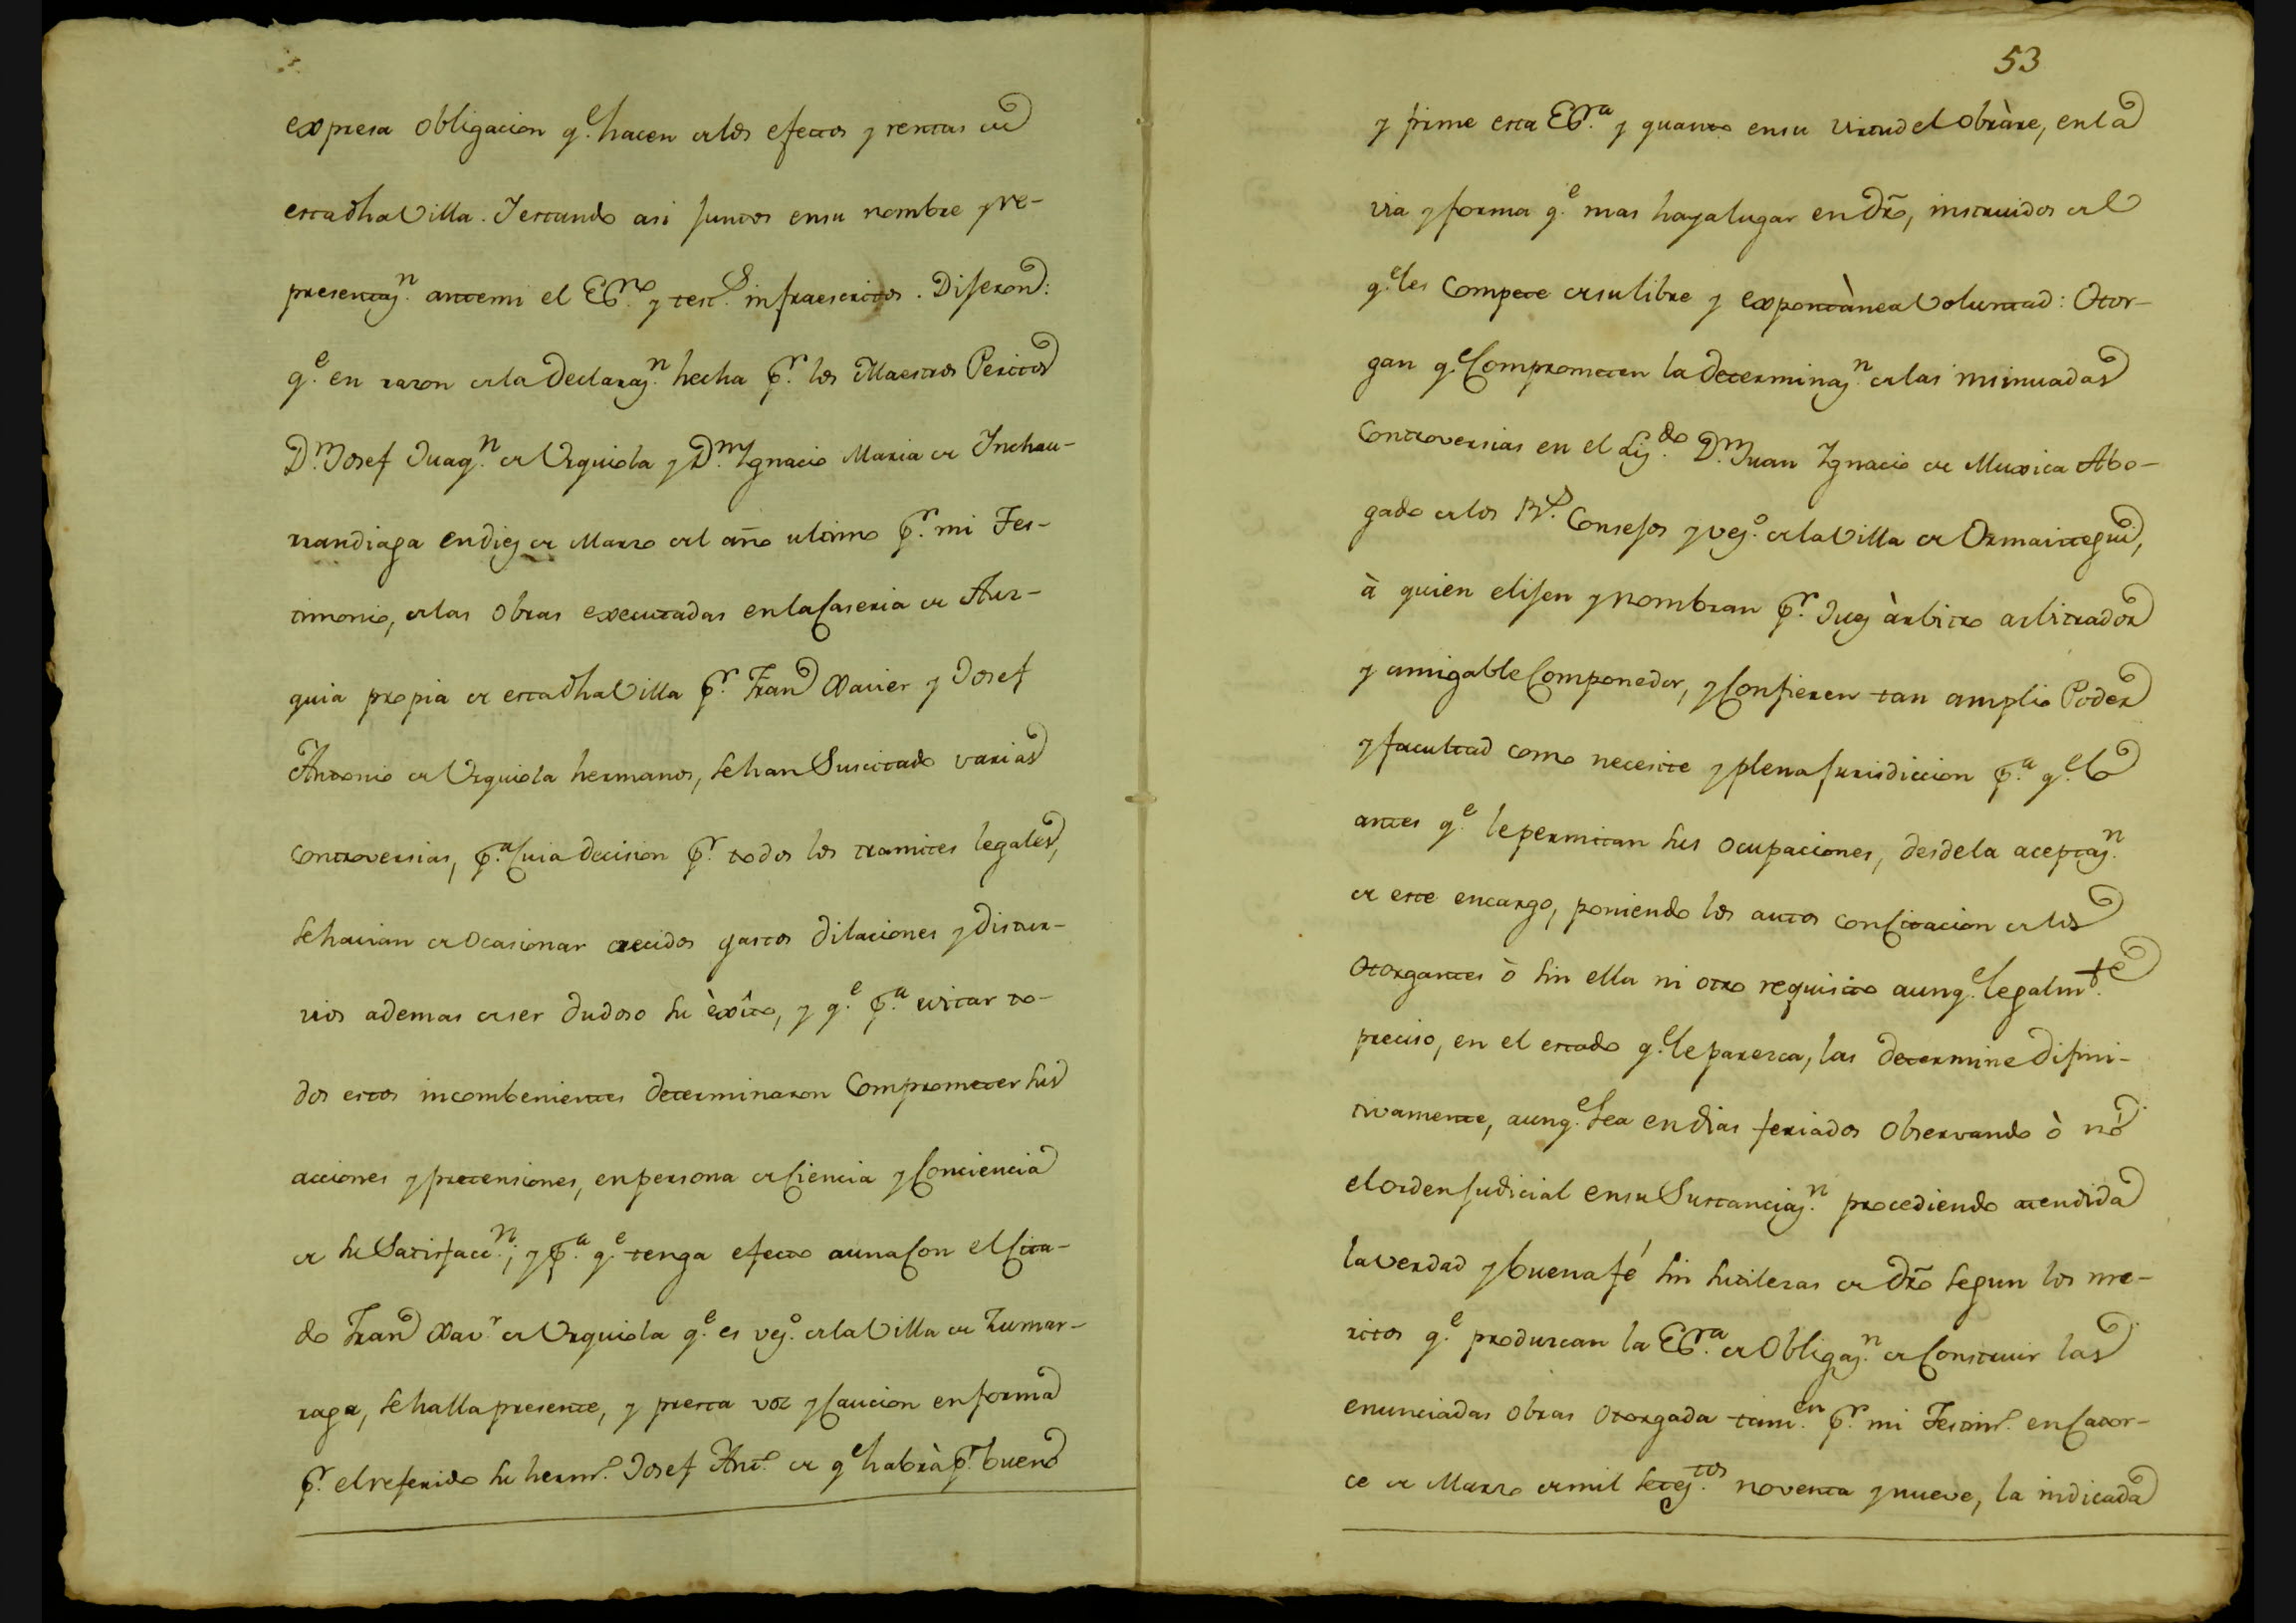 expresa obligacion q.e hacen de los efectos y rentas de
esta dha Villa. Y estando asi juntos en su nombre y re-
presentaz.n ante mi el Es.no y test.s infraescritos. Dijeron:
q.e en razon de la declaraz.n hecha p.r los Maestros Peritos
D.n Josef Juaq.n de Urquiola y D.n Ygnacio Maria de Inchau-
rrandiaga en diez de Marzo del año ultimo p.r mi Tes-
timonio, de las obras executadas en la Caseria de Aur-
quia propia de esta dha Villa p.r Fran.co Xavier y Josef
Antonio de Urquiola hermanos, se han Suscitado varias
controversias, p.a Cuia decision p.r todos los tramites legales,
se havian de ocasionar crecidos gastos dilaciones y distur-
vios ademas de ser dudoso su èxîto, y q.e p.a evitar to-
dos estos incombenientes determinaron Comprometer sus
acciones y pretensiones, en persona de Ciencia y Conciencia
de su Satisfacc.n; y p.a q.e tenga efecto a una Con el Cita-
do Fran.co Xav.r de Urquiola q.e es vez.o de la Villa de Zumar-
raga, se halla presente, y presta voz y Caucion en forma
p.r el referido su herm.o Josef Ant.o de q.e habrà p.r bueno
53
y firme esta Es.ra y quanto en su virtud el obràre, en la
via y forma q.e mas haya lugar en dr̃o, instruidos del
q.e les Compete de su libre y expontànea Voluntad: Otor-
gan q.e Comprometen la determinaz.n de las insinuadas
Controversias en el Liz.do D.n Juan Ygnacio de Muxica Abo-
gado de los R.s Consejos y vez.o de la Villa de Ormaiztegui,
à quien elijen y nombran p.r Juez àrbitro arbitrador
y amigable Componedor, y Confieren tan amplio Poder
y facultad como necesite y plena jurisdiccion p.a q.e lo
antes q.e le permitan sus ocupaciones, desde la aceptaz.n
de este encargo, poniendo los autos con Citacion de los
Otorgantes ò sin ella ni otro requisito aunq.e legalm.te
preciso, en el estado q.e le paresca, las determine difini-
tivamente, aunq.e sea en dias feriados observando ò nó
el orden judicial en su Sustanciaz.n procediendo atendida
la verdad y buena fé sin sutilezas de dr̃o segun los me-
ritos q.e produzcan la Es.ra de Obligaz.n de Construir las
enunciadas obras otorgada tam.en p.r mi Testim.o en Cator-
ce de Marzo de mil setez.tos noventa y nueve, la indicada